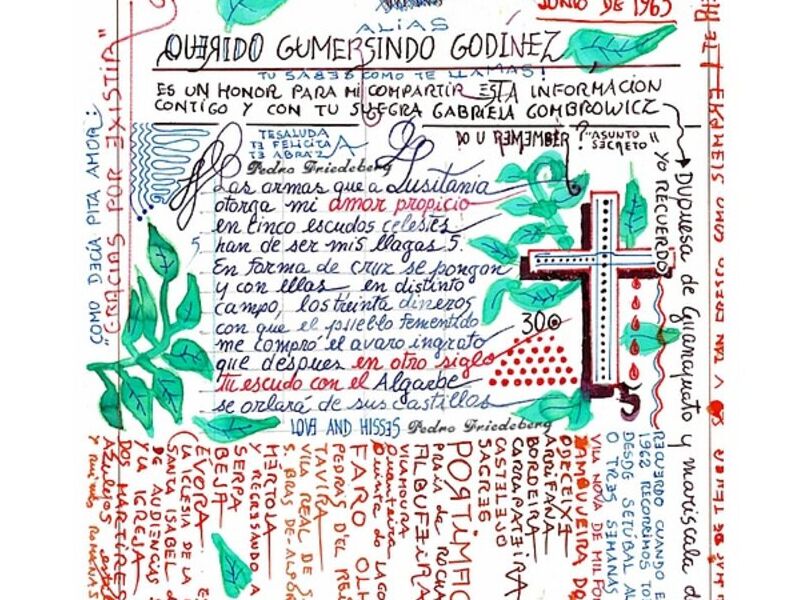 JUNIO DE 1963
ALIAS
QUERIDO GUMERSINDO GODINEZ
TU SABES COMO TE LLAMAS!
ES UN HONOR PARA MI COMPARTIR ESTA INFORMACION
CONTIGO Y CON TU SUEGRA GABRIELA GOMBROWICZ
DO U REMEMBER? "ASUNTO
SECRETO"
TE SALUDA
TE FELICITA
TE ABRAZA
Pedro Friedeberg
Las armas que a Lusitania
otorga mi amor propicio
en cinco escudos celestes
5 han de ser mis llagas 5.
En forma de cruz se pongan
y con ellas en distinto
campo, los treinta dineros
con que el pueblo fementido
me compró el avaro ingrato
que despues en otro siglo
tu escudo con el Algarbe
se orlará de sus castillos
30
LOVE AND HISSES Pedro Friedeberg
COMO DECÍA PITA AMOR:
"GRACIAS POR EXISTIR"
YO RECUERDO
DUQUESA de Guanajuato y mariscala d
RECUERDO CUANDO E
1962 RECORRIMOS TO
DESDE SETÚBAL AL
O TRES SEMANAS
VILA NOVA DE MIL FON
ZAMBUJEIRA DO
ODECEIXE
ARRIFANA
BORDEIRA
CARRAPATEIRA
CASTELEJO
SAGRES
PORTIMÃO
Praia da ROCHA
ALBUFEIRA
VILAMOURA
Quarteira
Quinta do LAGO
FARO OLH
PEDRAS D'EL REI
TAVIRA
VILA REAL DE S
S. BRAS DE ALPOR
MÉRTOLA
Y REGRESANDO A
SERPA
BEJA
ÉVORA
(LA IGLESIA DE LA
SANTA ISABEL D
DE AUDIENCIAS D
Y LA IGREJA
DOS MARTIRES
Azulejos
y ruinas ROMANAS